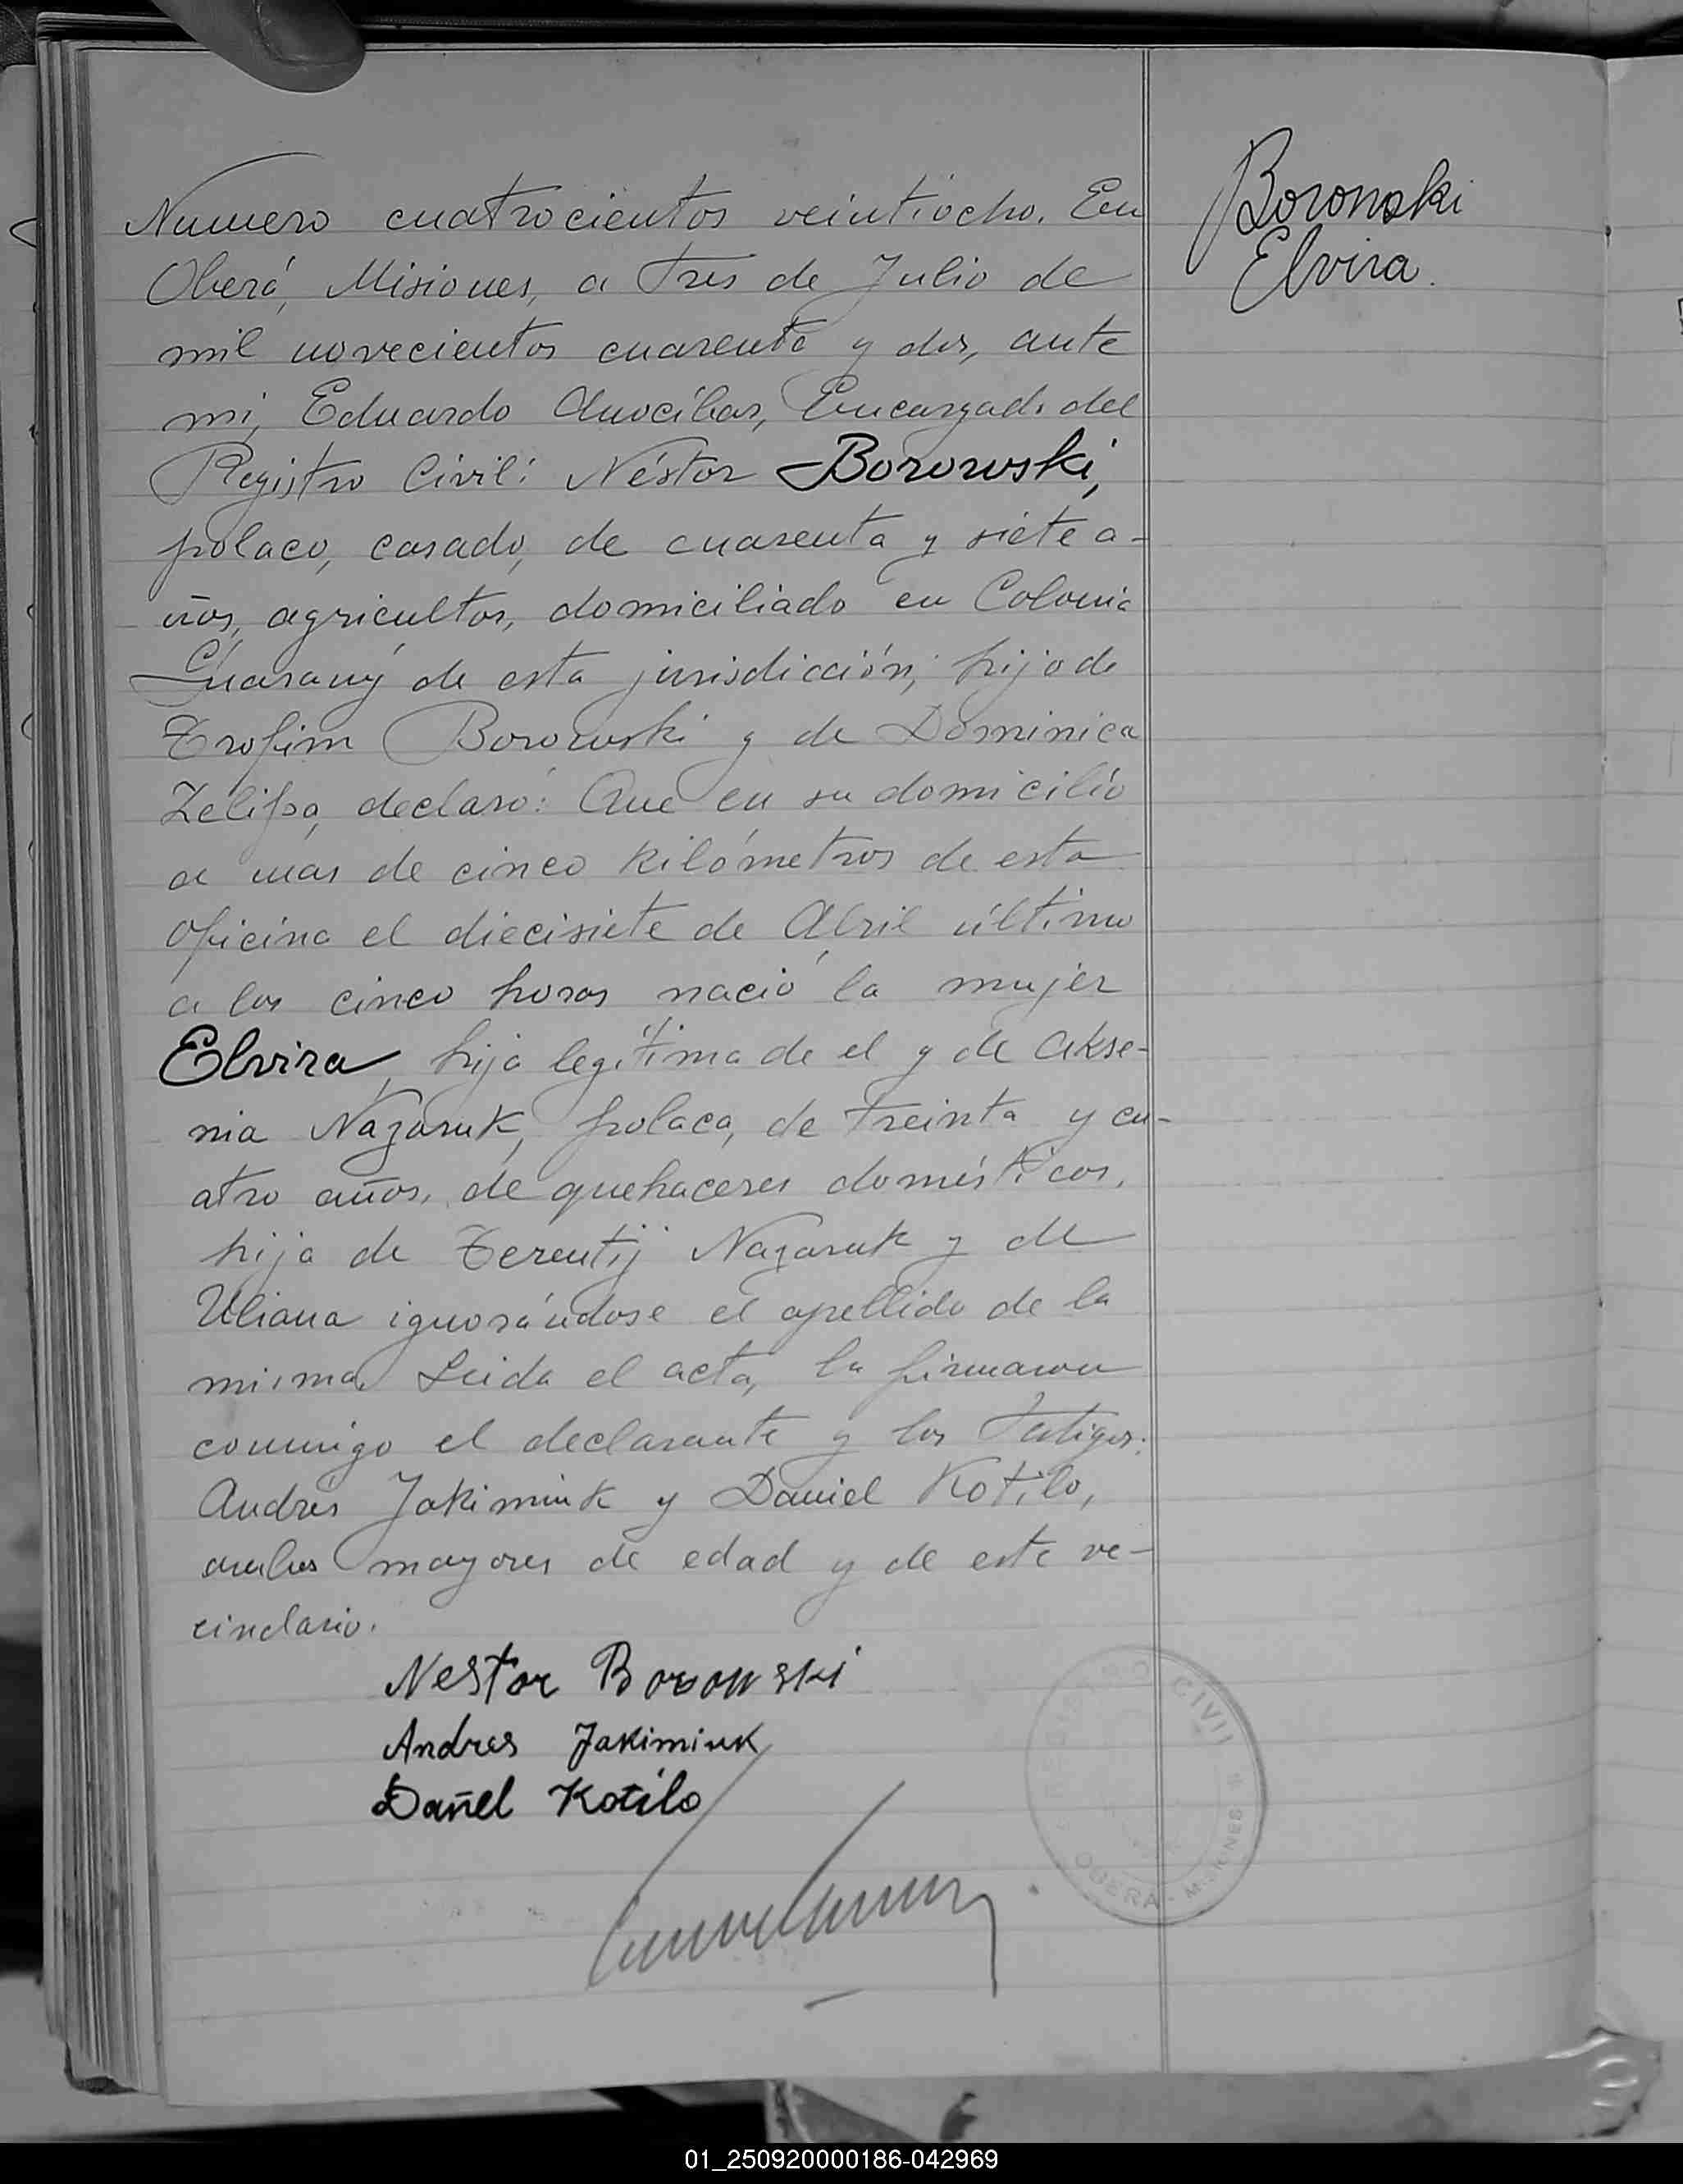 Numero cuatrocientos veintiocho. En
Oberá, Misiones, a tres de Julio de
mil novecientos cuarenta y dos, ante
mi, Eduardo Anocíbar, Encargado del
Registro Civil: Néstor Borowski,
polaco, casado, de cuarenta y siete a-
ños, agricultor, domiciliado en Colonia
Guarany de esta jurisdicción, hijo de
Trofim Borowski y de Dominica
Zelipa, declaró: Que en su domicilio
a mas de cinco kilómetros de esta
oficina el diecisiete de Abril último
a las cinco horas nació la mujer
Elvira, hija legítima de el y de Akse-
nia Nazaruk, polaca, de treinta y cu-
atro años, de quehaceres domésticos,
hija de Terentij Nazaruk y de
Uliana ignorándose el apellido de la
misma. Leida el acta, la firmaron
conmigo el declarante y los testigos:
Andrés Jakimiuk y Daniel Kotilo,
ambos mayores de edad y de este ve-
cindario.
Nestor Borowski
Andres Jakimiuk
Dañel Kotilo
Borowski
Elvira.
REGISTRO CIVIL
OBERA - MISIONES
01_250920000186-042969